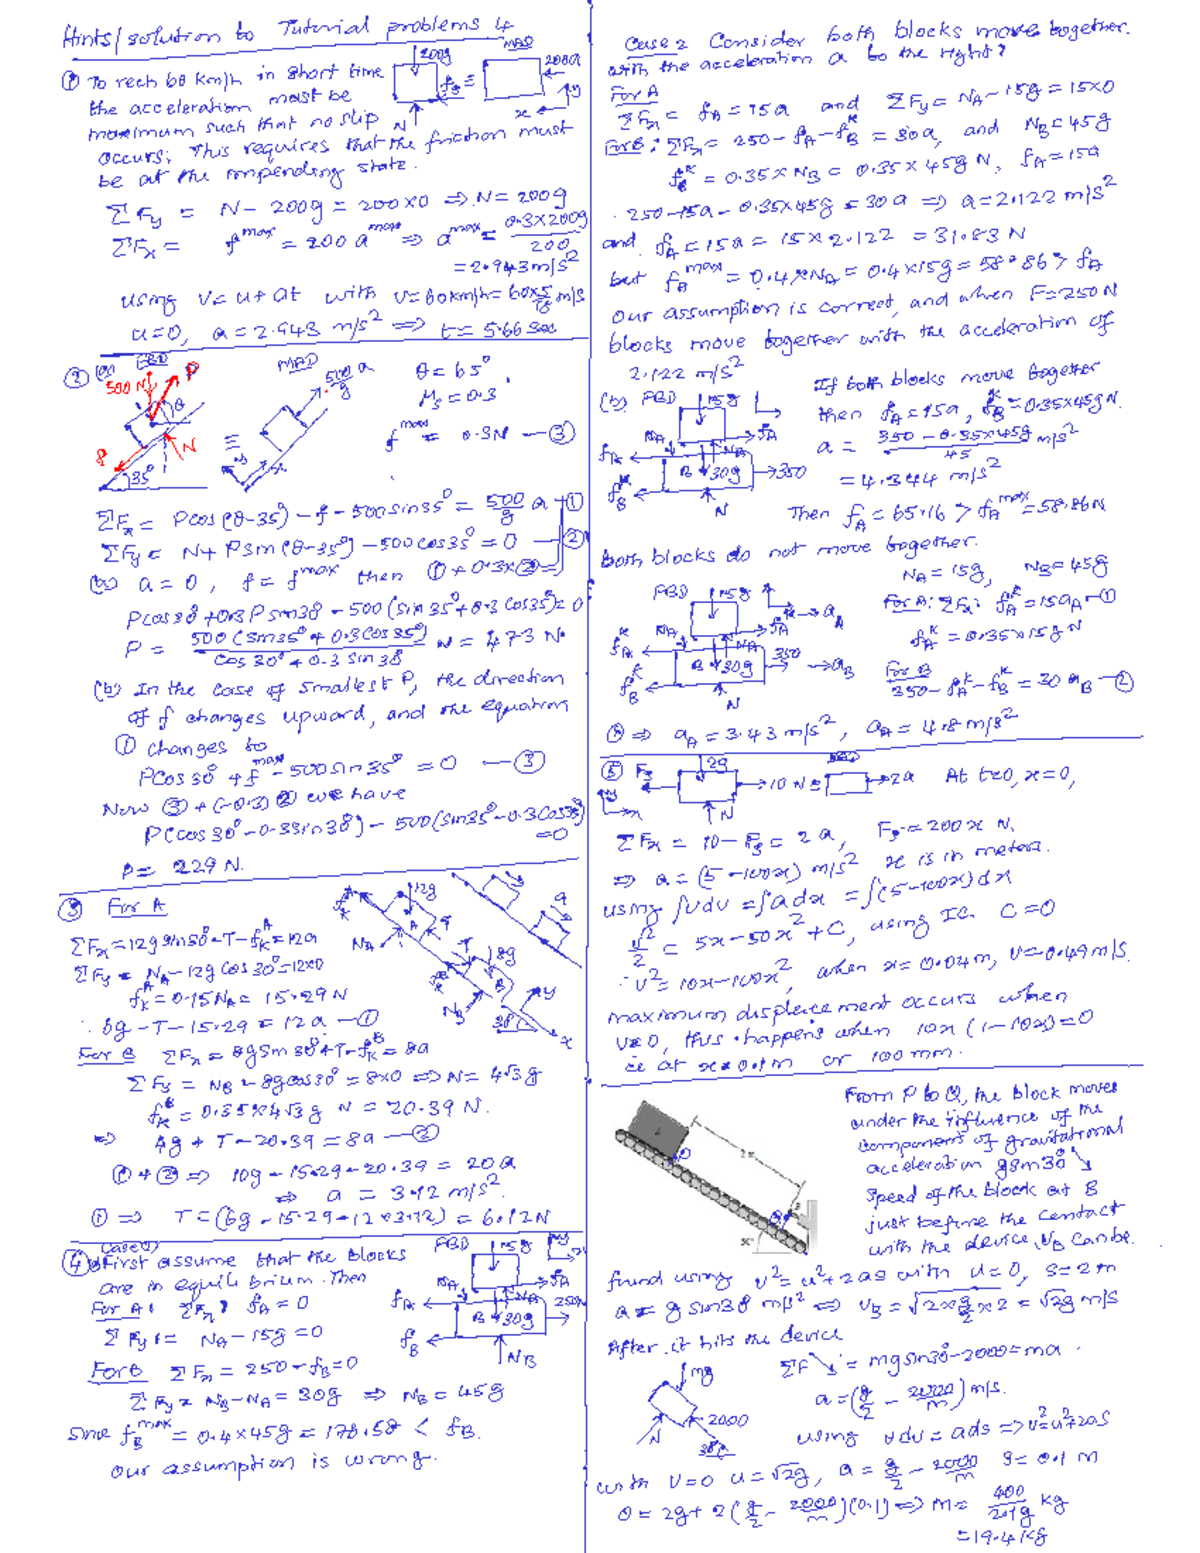 Hints/solution to Tutorial problems 4
① To rech 60 km/h in short time
the acceleration most be
maximum such that no slip
occurs; This requires that the friction must
be at the impending state.
200g
MAD
200a
N
x
y
ΣFy = N - 200g = 200×0 ⇒ N = 200g
ΣFx = f^max = 200 a^max ⇒ a^max = 0.3×200g/200
= 2.943 m/s²
using v = u + at with v = 60 km/h = 60×5/18 m/s
u = 0, a = 2.943 m/s² ⇒ t = 5.66 sec
② (a) FBD
500 N
P
θ
N
35°
MAD
500/g a
θ = 65°
μs = 0.3
f^max = 0.3N —③
ΣFx = Pcos(θ-35) - f - 500sin35° = 500/g a —①
ΣFy = N + Psin(θ-35°) - 500cos35° = 0 —②
(a) a = 0, f = f^max then ① + 0.3×② ⇒
Pcos30° + 0.3 P sin30 - 500(sin35° + 0.3 cos35°) = 0
P = 500(sin35° + 0.3cos35°)/cos30° + 0.3 sin30 N = 473 N.
(b) In the case of smallest P, the direction
of f changes upward, and the equation
① changes to
Pcos30° + f^max - 500sin35° = 0 —③
Now ③ + (-0.3)② we have
P(cos30° - 0.3sin30°) - 500(sin35° - 0.3cos35°) = 0
P = 229 N.
③ For A
ΣFx = 12g sin30° - T - fk^A = 12a
ΣFy = NA - 12g cos30° = 12×0
fk^A = 0.15NA = 15.29 N
∴ 6g - T - 15.29 = 12a —①
12g
A
a
NA
T
8g
B
NB
30°
y
x
For B ΣFx = 8g sin30° + T - fk^B = 8a
ΣFy = NB - 8g cos30° = 8×0 ⇒ N = 4√3g
fk^B = 0.35×4√3g N = 20.39 N.
⇒ 4g + T - 20.39 = 8a —②
① + ② ⇒ 10g - 15.29 - 20.39 = 20a
⇒ a = 3.12 m/s².
① ⇒ T = (6g - 15.29 - 12×3.12) = 6.12N
Case(1)
④(a) First assume that the blocks
are in equilibrium. Then
For A: ΣFx; fA = 0
ΣFy: = NA - 15g = 0
For B ΣFx = 250 - fB = 0
ΣFy = NB - NA = 30g ⇒ NB = 45g
since fB^max = 0.4×45g = 176.58 < fB.
our assumption is wrong.
FBD
15g
NA
fA
250N
B 30g
fB
NB
Case 2 Consider both blocks move together.
with the acceleration a to the right?
For A
ΣFx = fA = 15a and ΣFy = NA - 15g = 15×0
For B: ΣFx = 250 - fA - fB^k = 30a, and NB = 45g
fB^k = 0.35×NB = 0.35×45g N, fA = 15a
250 - 15a - 0.35×45g = 30a ⇒ a = 2.122 m/s²
and fA = 15a = 15×2.122 = 31.83 N
but fA^max = 0.4×NA = 0.4×15g = 58.86 > fA
our assumption is correct, and when F = 250N
blocks move together with the acceleration of
2.122 m/s²
(b) FBD
15g
NA
fA
B 30g
350
fB^k
N
If both blocks move together
then fA = 15a, fB^k = 0.35×45g N.
a = 350 - 0.35×45g/45 m/s²
= 4.344 m/s²
Then fA = 65.16 > fA^max = 58.86N
both blocks do not move together.
NA = 15g, NB = 45g
FBD
15g
NA
fA^k
aA
B 30g
350
aB
fB^k
N
For A: ΣFx: fA^k = 15aA —①
fA^k = 0.35×15g N
For B
350 - fA^k - fB^k = 30aB —②
① ⇒ aA = 3.43 m/s², aA = 4.8 m/s²
⑤ Fs
2g
10 N
MAD
2a
N
At t=0, x=0,
ΣFx = 10 - Fs = 2a, Fs = 200x N.
⇒ a = (5 - 100x) m/s² x is in meters.
using ∫vdv = ∫adx = ∫(5 - 100x)dx
v²/2 = 5x - 50x² + C, using I.C. C = 0
∴ v² = 10x - 100x², when x = 0.04m, v = 0.49 m/s.
maximum displacement occurs when
v=0, this happens when 10x(1 - 10x) = 0
ie at x = 0.1m or 100 mm.
2 m
30°
From P to Q, the block moves
under the influence of the
component of gravitational
acceleration gsin30°
speed of the block at B
just before the contact
with the device, vB can be.
found using v² = u² + 2as with u = 0, s = 2 m
a = g sin30 m/s² ⇒ vB = √2×g/2×2 = √2g m/s
After it hits the device
ΣF = mgsin30° - 2000 = ma.
a = (g/2 - 2000/m) m/s.
using vdv = ads ⇒ v² = u² + 2as
mg
2000
N
30°
with v = 0 u = √2g, a = g/2 - 2000/m s = 0.1 m
0 = 2g + 2(g/2 - 2000/m)(0.1) ⇒ m = 400/2.1g kg
= 19.4 kg